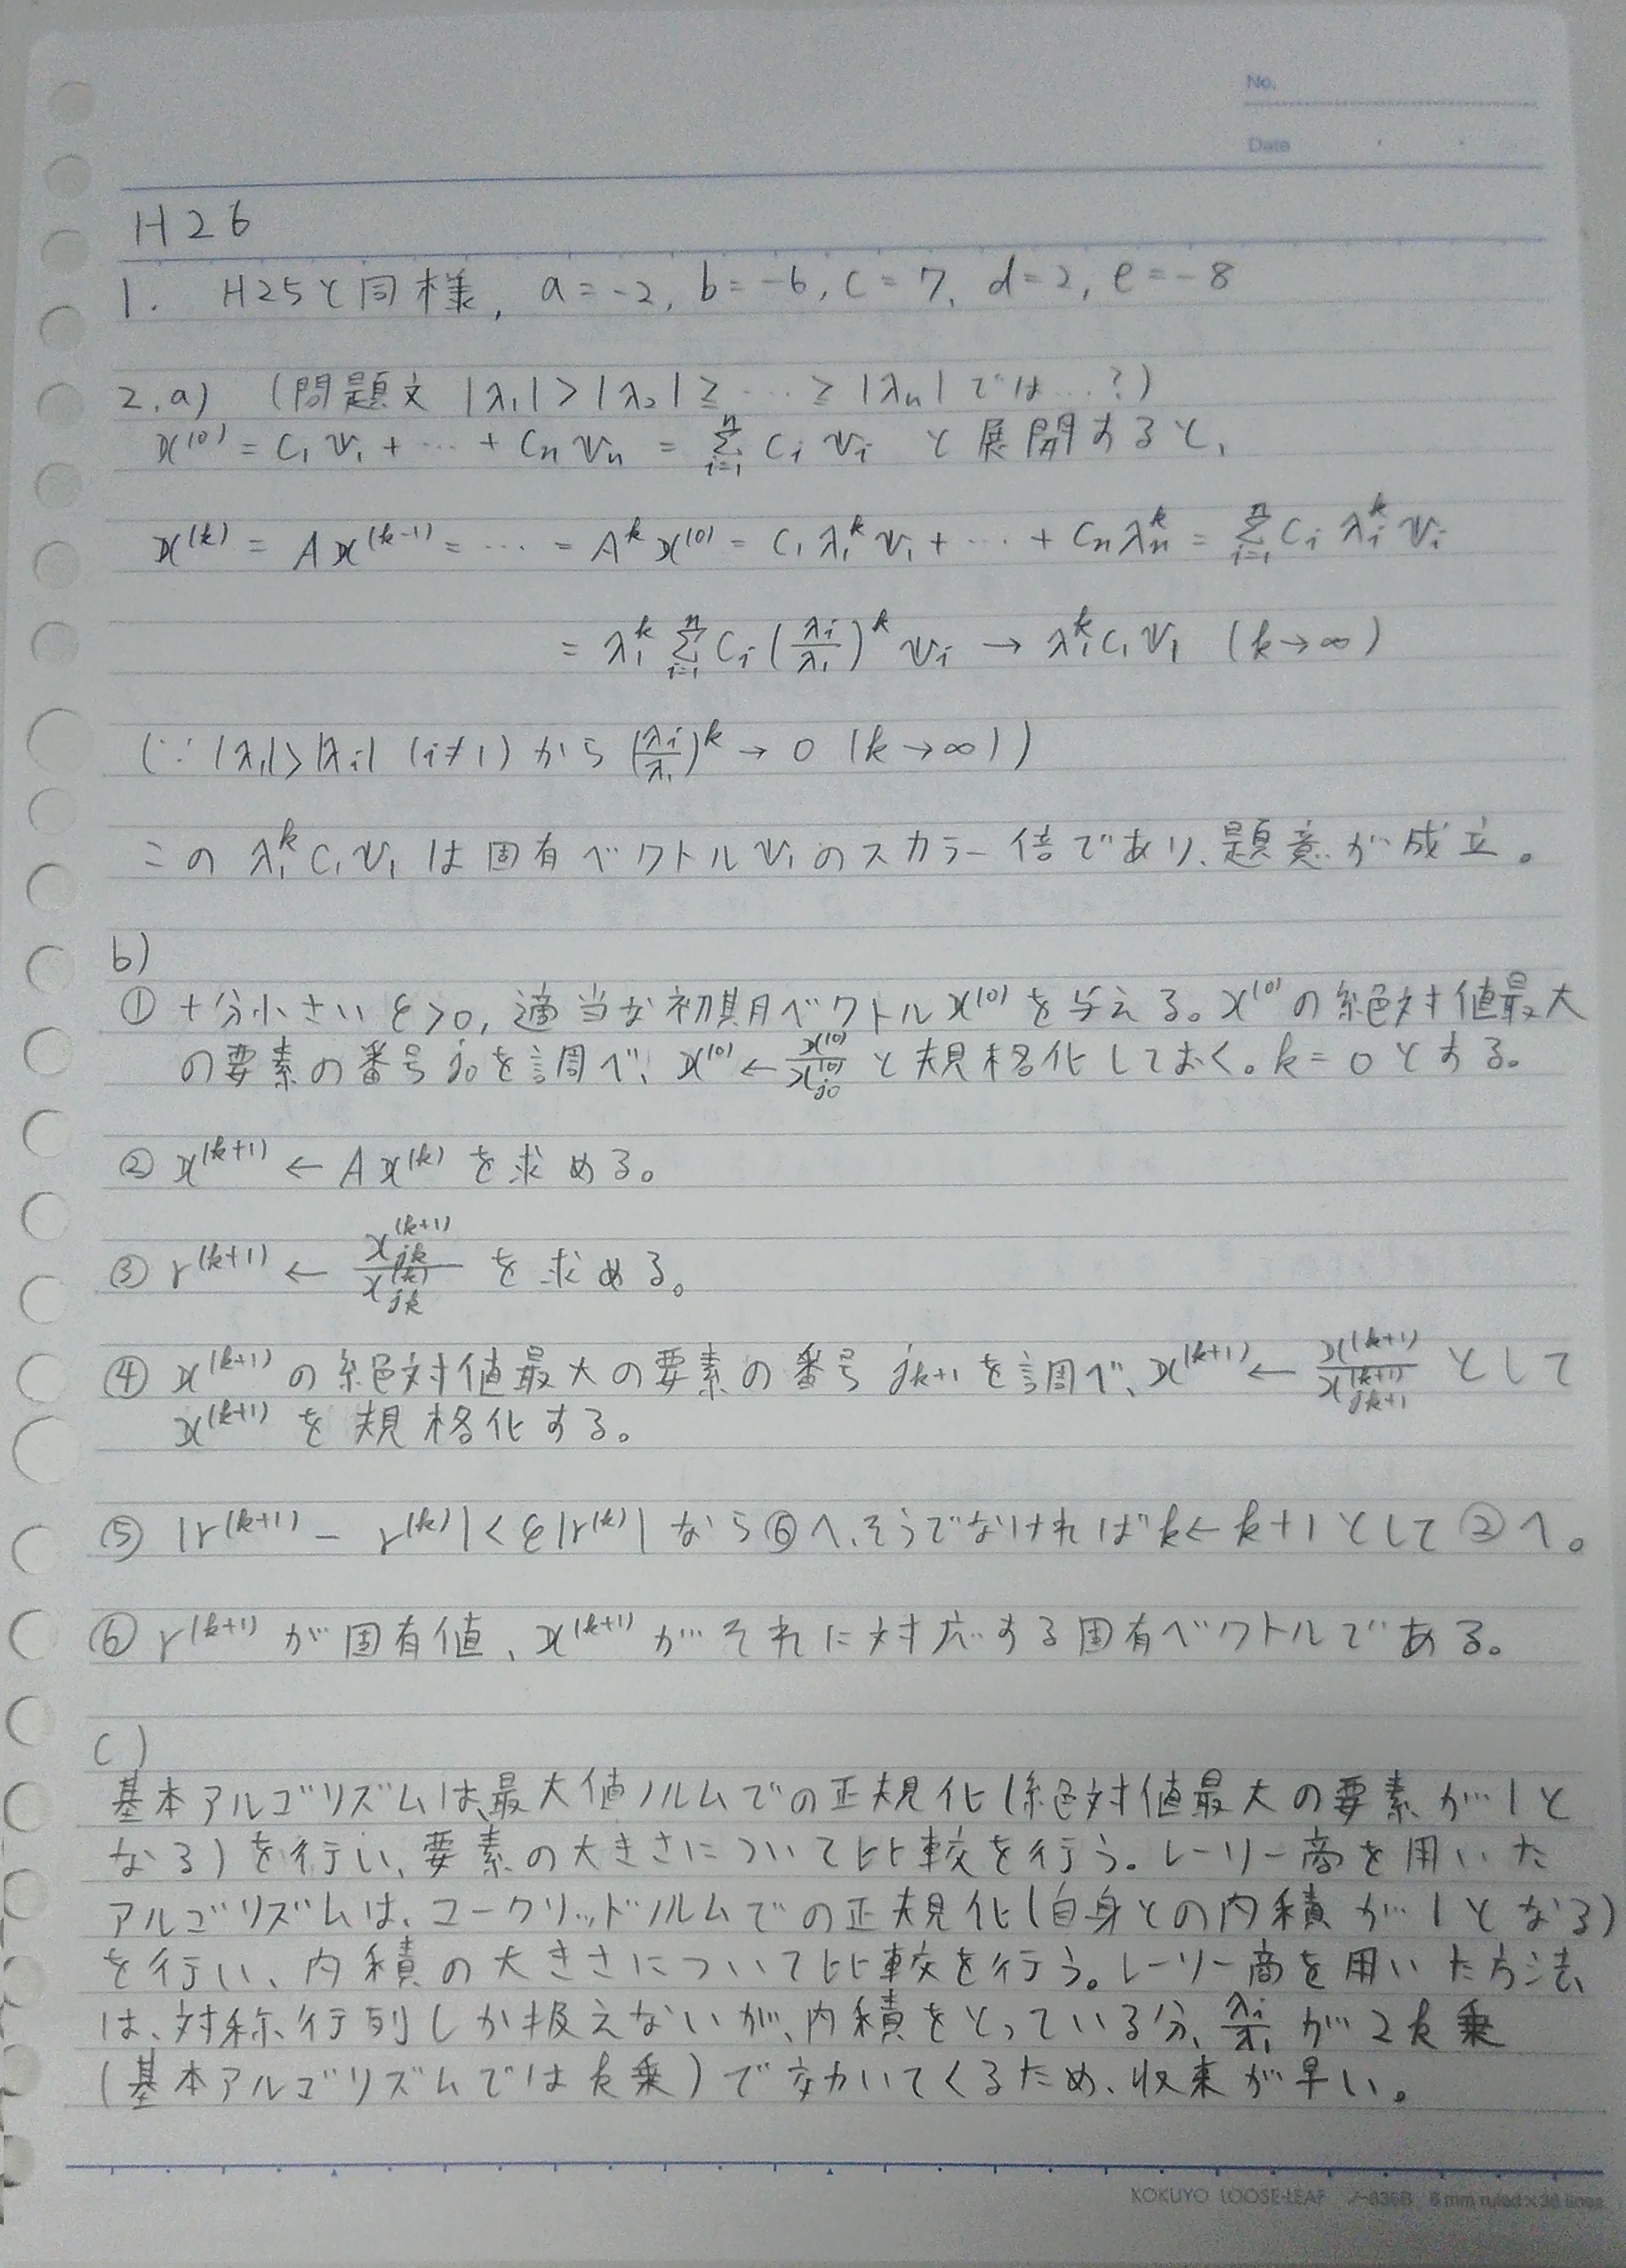 No.
Date
H26
1. H25と同様, a=-2, b=-6, c=7, d=2, e=-8
2.a) (問題文 |λ₁|>|λ₂|≧…≧|λₙ| では…?)
x⁽⁰⁾ = C₁v₁ + … + Cₙvₙ = Σ_{i=1}^{n} Cᵢ vᵢ と展開すると、
x^{(k)} = Ax^{(k-1)} = … = A^k x^{(0)} = C₁λ₁^k v₁ + … + Cₙλₙ^k = Σ_{i=1}^{n} Cᵢ λᵢ^k vᵢ
= λ₁^k Σ_{i=1}^{n} Cᵢ (λᵢ/λ₁)^k vᵢ → λ₁^k C₁ v₁ (k→∞)
(∵ |λ₁|>|λᵢ| (i≠1) から (λᵢ/λ₁)^k → 0 (k→∞))
この λ₁^k C₁ v₁ は固有ベクトル v₁ のスカラー倍であり、題意が成立。
b)
① 十分小さい ε>0, 適当な初期ベクトル x^{(0)} を与える。x^{(0)} の絶対値最大
の要素の番号 j₀ を調べ、x^{(0)} ← x^{(0)}/x_{j₀}^{(0)} と規格化しておく。k=0とする。
② x^{(k+1)} ← Ax^{(k)} を求める。
③ r^{(k+1)} ← x_{jk}^{(k+1)}/x_{jk}^{(k)} を求める。
④ x^{(k+1)} の絶対値最大の要素の番号 j_{k+1} を調べ、x^{(k+1)} ← x^{(k+1)}/x_{jk+1}^{(k+1)} として
x^{(k+1)} を規格化する。
⑤ |r^{(k+1)} - r^{(k)}| < ε|r^{(k)}| なら⑥へ、そうでなければ k←k+1 として②へ。
⑥ r^{(k+1)} が固有値、x^{(k+1)} がそれに対応する固有ベクトルである。
c)
基本アルゴリズムは、最大値ノルムでの正規化(絶対値最大の要素が1と
なる)を行い、要素の大きさについて比較を行う。レーリー商を用いた
アルゴリズムは、ユークリッドノルムでの正規化(自身との内積が1となる)
を行い、内積の大きさについて比較を行う。レーリー商を用いた方法
は、対称行列しか扱えないが、内積をとっている分、λᵢ/λ₁ が2k乗
(基本アルゴリズムではk乗)で効いてくるため、収束が早い。
KOKUYO LOOSE-LEAF ノ-836B 6 mm ruled×36 lines